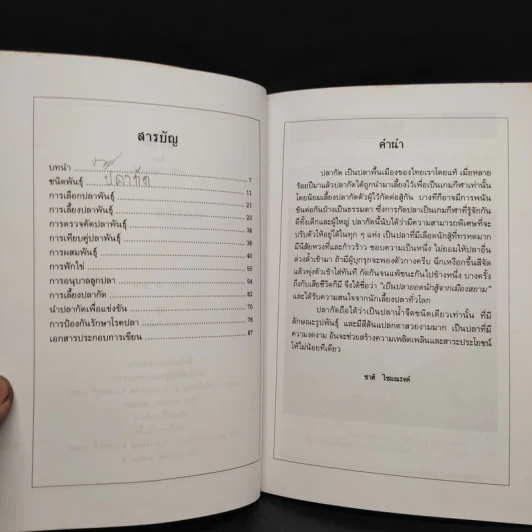 สารบัญ
บทนำ 7
ชนิดพันธุ์ ปลากัด 11
การเลือกปลาพันธุ์ 21
การเลี้ยงปลาพันธุ์ 23
การตรวจคัดปลาพันธุ์ 34
การเทียบคู่ปลาพันธุ์ 38
การผสมพันธุ์ 40
การฟักไข่ 50
การอนุบาลลูกปลา 54
การเลี้ยงปลากัด 62
นำปลากัดเพื่อแข่งขัน 72
การป้องกันรักษาโรคปลา 78
เอกสารประกอบการเขียน 87
คำนำ
ปลากัด เป็นปลาพื้นเมืองของไทยเราโดยแท้ เมื่อหลาย
ร้อยปีมาแล้วปลากัดได้ถูกนำมาเลี้ยงไว้เพื่อเป็นเกมกีฬาเท่านั้น
โดยนิยมเลี้ยงปลากัดตัวผู้ไว้กัดต่อสู้กัน บางทีก็อาจมีการพนัน
ขันต่อกันบ้างเป็นธรรมดา ซึ่งการกัดปลาเป็นเกมกีฬาที่รู้จักกัน
ดีทั้งเด็กและผู้ใหญ่ ปลากัดนี้นับได้ว่ามีความสามารถพิเศษที่จะ
ปรับตัวให้อยู่ได้ในทุก ๆ แห่ง เป็นปลาที่มีเลือดนักสู้ที่ทรหดมาก
มีนิสัยหวงที่และก้าวร้าว ชอบความเป็นหนึ่ง ไม่ยอมให้ปลาอื่น
ล่วงล้ำเข้ามา ถ้ามีผู้บุกรุกจะพองตัวกางครีบ ฉีกเหงือกขึ้นสีจัด
แล้วพุ่งตัวเข้าใส่ทันที กัดกันจนแพ้ชนะกันไปข้างหนึ่ง บางครั้ง
ถึงกับเสียชีวิตก็มี จึงได้ชื่อว่า "เป็นปลายอดนักสู้จากเมืองสยาม"
และได้รับความสนใจจากนักเลี้ยงปลาทั่วโลก
ปลากัดถือได้ว่าเป็นปลาน้ำจืดชนิดเดียวเท่านั้น ที่มี
ลักษณะรูปพันธุ์ และมีสีสันแปลกตาสวยงามมาก เป็นปลาที่มี
ความงดงาม อันจะช่วยสร้างความเพลิดเพลินและสาระประโยชน์
ให้ไม่น้อยทีเดียว
ชาติ ไชยณรงค์